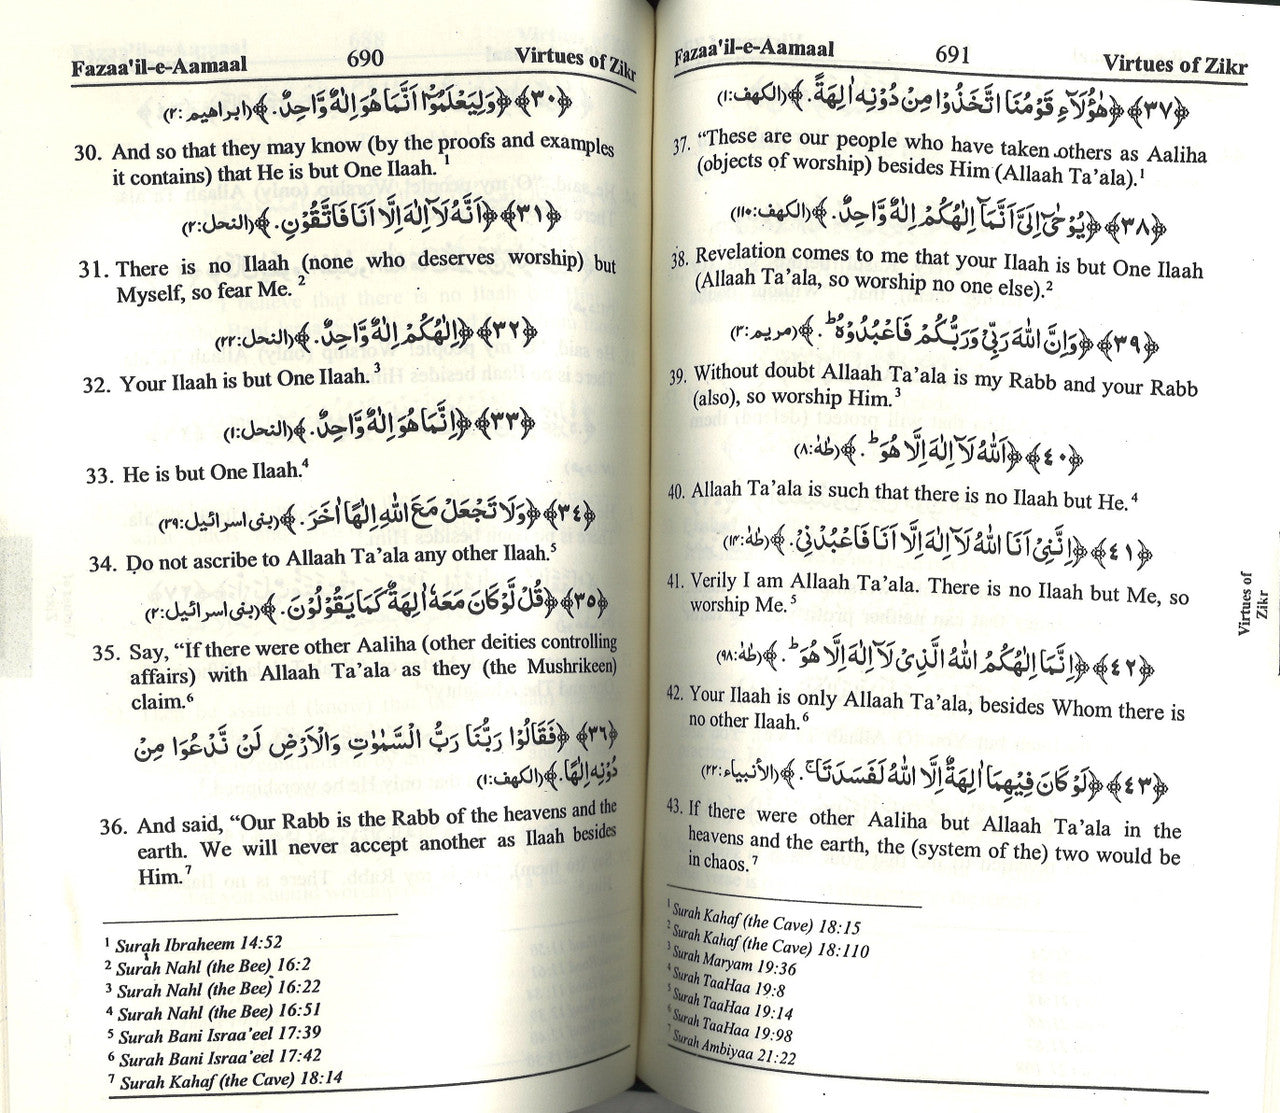 Fazaa'il-e-Aamaal 690 Virtues of Zikr
﴿٣٠﴾ ﴿وَلِيَعْلَمُوْٓا اَنَّمَا هُوَ اِلٰهٌ وَّاحِدٌ.﴾ (ابراهيم:٢)
30. And so that they may know (by the proofs and examples
it contains) that He is but One Ilaah. 1
﴿٣١﴾ ﴿اَنَّهٗ لَآ اِلٰهَ اِلَّآ اَنَا فَاتَّقُوْنِ.﴾ (النحل:٢)
31. There is no Ilaah (none who deserves worship) but
Myself, so fear Me. 2
﴿٣٢﴾ ﴿اِلٰهُكُمْ اِلٰهٌ وَّاحِدٌ.﴾ (النحل:٢٢)
32. Your Ilaah is but One Ilaah. 3
﴿٣٣﴾ ﴿اِنَّمَا هُوَ اِلٰهٌ وَّاحِدٌ.﴾ (النحل:١)
33. He is but One Ilaah.4
﴿٣٤﴾ ﴿وَلَا تَجْعَلْ مَعَ اللّٰهِ اِلٰهًا اٰخَرَ.﴾ (بنى اسرائيل:٣٩)
34. Do not ascribe to Allaah Ta’ala any other Ilaah.5
﴿٣٥﴾ ﴿قُلْ لَّوْ كَانَ مَعَهٗٓ اٰلِهَةٌ كَمَا يَقُوْلُوْنَ.﴾ (بنى اسرائيل:٢)
35. Say, “If there were other Aaliha (other deities controlling
affairs) with Allaah Ta’ala as they (the Mushrikeen)
claim.6
﴿٣٦﴾ ﴿فَقَالُوْا رَبُّنَا رَبُّ السَّمٰوٰتِ وَالْاَرْضِ لَنْ نَّدْعُوَا مِنْ
دُوْنِهٖٓ اِلٰهًا.﴾ (الكهف:١)
36. And said, “Our Rabb is the Rabb of the heavens and the
earth. We will never accept another as Ilaah besides
Him.7
1 Surah Ibraheem 14:52
2 Surah Nahl (the Bee) 16:2
3 Surah Nahl (the Bee) 16:22
4 Surah Nahl (the Bee) 16:51
5 Surah Bani Israa'eel 17:39
6 Surah Bani Israa'eel 17:42
7 Surah Kahaf (the Cave) 18:14
Fazaa'il-e-Aamaal 691 Virtues of Zikr
﴿٣٧﴾ ﴿هٰٓؤُلَآءِ قَوْمُنَا اتَّخَذُوْا مِنْ دُوْنِهٖٓ اٰلِهَةً.﴾ (الكهف:١)
37. “These are our people who have taken others as Aaliha
(objects of worship) besides Him (Allaah Ta’ala).1
﴿٣٨﴾ ﴿يُوْحٰٓى اِلَىَّ اَنَّمَآ اِلٰهُكُمْ اِلٰهٌ وَّاحِدٌ.﴾ (الكهف:١١٠)
38. Revelation comes to me that your Ilaah is but One Ilaah
(Allaah Ta’ala, so worship no one else).2
﴿٣٩﴾ ﴿وَاِنَّ اللّٰهَ رَبِّىْ وَرَبُّكُمْ فَاعْبُدُوْهُ ؕ.﴾ (مريم:٣)
39. Without doubt Allaah Ta’ala is my Rabb and your Rabb
(also), so worship Him.3
﴿٤٠﴾ ﴿اَللّٰهُ لَآ اِلٰهَ اِلَّا هُوَ ؕ.﴾ (طٰهٰ:٨)
40. Allaah Ta’ala is such that there is no Ilaah but He.4
﴿٤١﴾ ﴿اِنَّنِىْٓ اَنَا اللّٰهُ لَآ اِلٰهَ اِلَّآ اَنَا فَاعْبُدْنِىْ.﴾ (طٰهٰ:١٣)
41. Verily I am Allaah Ta’ala. There is no Ilaah but Me, so
worship Me.5
﴿٤٢﴾ ﴿اِنَّمَآ اِلٰهُكُمُ اللّٰهُ الَّذِىْ لَآ اِلٰهَ اِلَّا هُوَ ؕ.﴾ (طٰهٰ:٩٨)
42. Your Ilaah is only Allaah Ta’ala, besides Whom there is
no other Ilaah.6
﴿٤٣﴾ ﴿لَوْ كَانَ فِيْهِمَآ اٰلِهَةٌ اِلَّا اللّٰهُ لَفَسَدَتَا ۚ.﴾ (الأنبياء:٢٢)
43. If there were other Aaliha but Allaah Ta’ala in the
heavens and the earth, the (system of the) two would be
in chaos.7
1 Surah Kahaf (the Cave) 18:15
2 Surah Kahaf (the Cave) 18:110
3 Surah Maryam 19:36
4 Surah TaaHaa 19:8
5 Surah TaaHaa 19:14
6 Surah TaaHaa 19:98
7 Surah Ambiyaa 21:22
Virtues of
Zikr